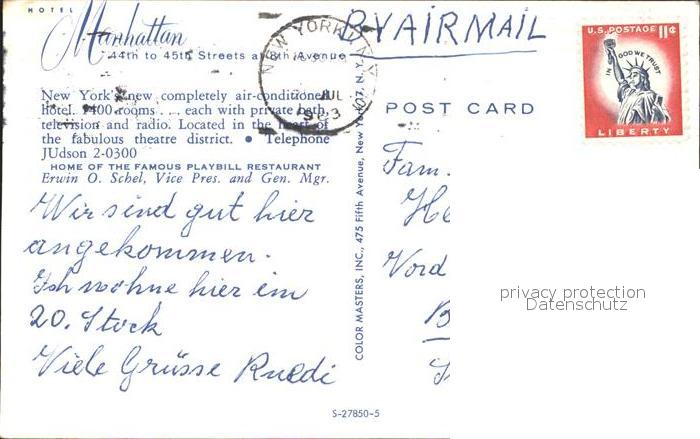 HOTEL
Manhattan
44th to 45th Streets at 8th Avenue
New York's new completely air-conditioned
hotel. 1400 rooms . . . each with private bath,
television and radio. Located in the heart of
the fabulous theatre district. • Telephone
JUdson 2-0300
HOME OF THE FAMOUS PLAYBILL RESTAURANT
Erwin O. Schel, Vice Pres. and Gen. Mgr.
Wir sind gut hier
angekommen.
Ich wohne hier im
20. Stock
Viele Grüsse Ruedi
COLOR MASTERS, INC., 475 Fifth Avenue, New York 17, N. Y.
S-27850-5
NEW YORK, N.Y.
JUL
1963
BY AIR MAIL
U.S. POSTAGE 11¢
IN GOD WE TRUST
LIBERTY
POST CARD
Fam.
He
Vord
B
privacy protection
Datenschutz